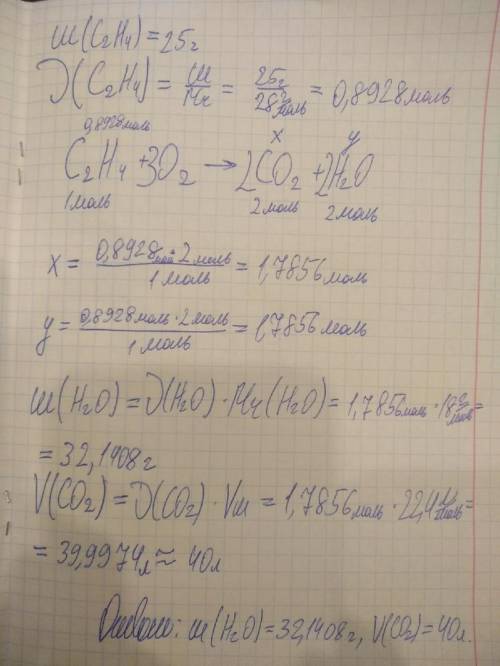 m(C₂H₄) = 25г
ν(C₂H₄) = m/Mr = 25г/28г/моль = 0,8928моль
0,8928моль x y
C₂H₄ + 3O₂ → 2CO₂ + 2H₂O
1моль 2моль 2моль
x = 0,8928моль · 2моль / 1моль = 1,7856моль
y = 0,8928моль · 2моль / 1моль = 1,7856моль
m(H₂O) = ν(H₂O) · Mr(H₂O) = 1,7856моль · 18г/моль =
= 32,1408г
V(CO₂) = ν(CO₂) · Vm = 1,7856моль · 22,4л/моль =
= 39,9974л ≈ 40л
Ответ: m(H₂O) = 32,1408г, V(CO₂) = 40л.